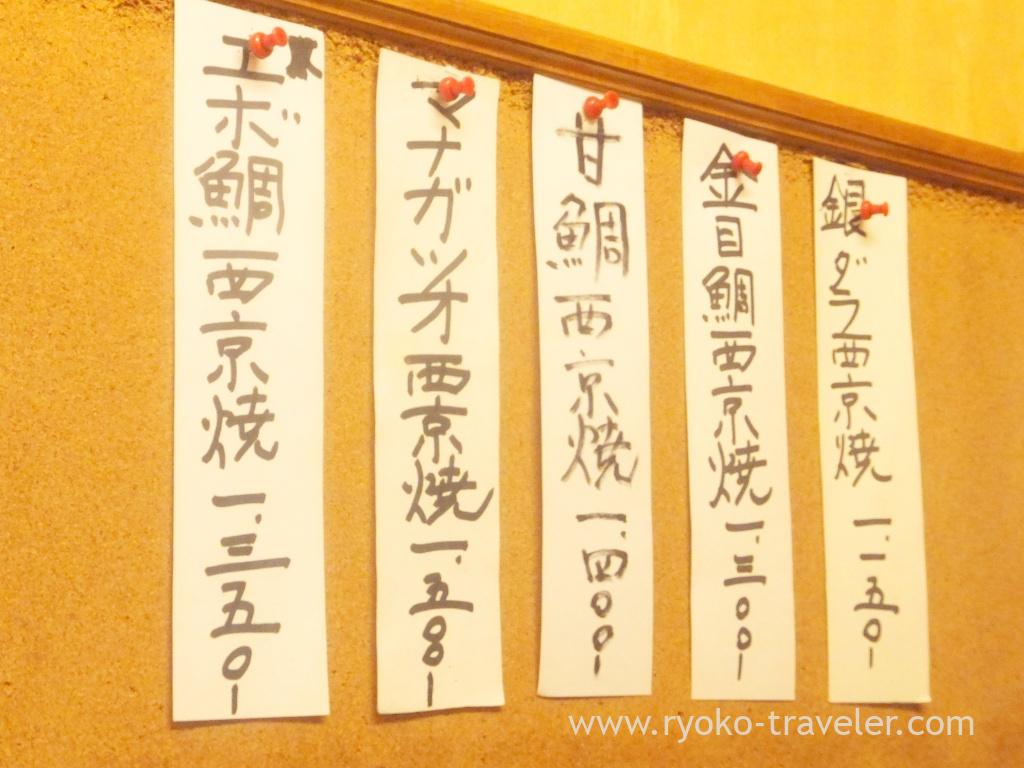 銀ダラ西京焼 一、一五〇-
金目鯛西京焼 一、三〇〇-
甘鯛西京焼 一、四〇〇-
マナガツオ西京焼 一、五〇〇-
エボ鯛西京焼 一、三五〇-
www.ryoko-traveler.com